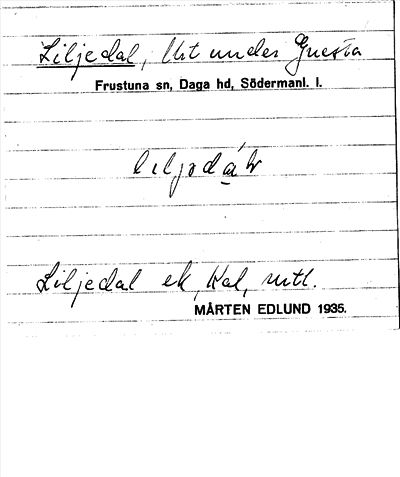 Liljedal, Utunder Gnesta
Frustuna sn, Daga hd, Södermanl. l.
Liljedal ek, Kal, utl.
MÅRTEN EDLUND 1935.